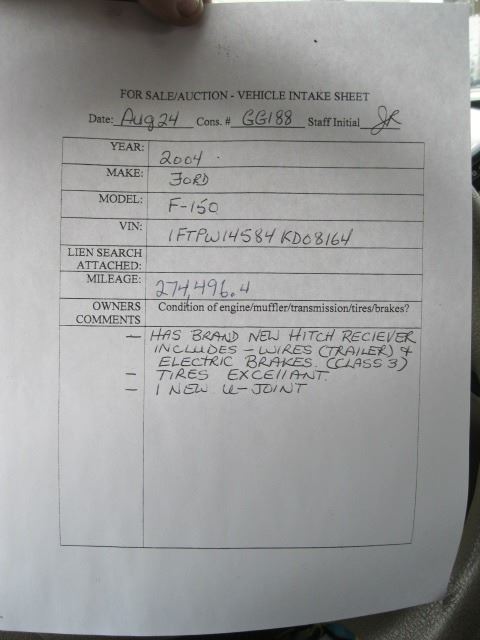 FOR SALE/AUCTION - VEHICLE INTAKE SHEET
Date: Aug 24 Cons. # GG188 Staff Initial JR
YEAR: 2004
MAKE: FORD
MODEL: F-150
VIN: 1FTPW14584KD08164
LIEN SEARCH
ATTACHED:
MILEAGE: 274,496.4
OWNERS Condition of engine/muffler/transmission/tires/brakes?
COMMENTS
- HAS BRAND NEW HITCH RECIEVER
INCLUDES - WIRES (TRAILER) &
ELECTRIC BRAKES. (CLASS 3)
- TIRES EXCELLANT.
- 1 NEW U-JOINT